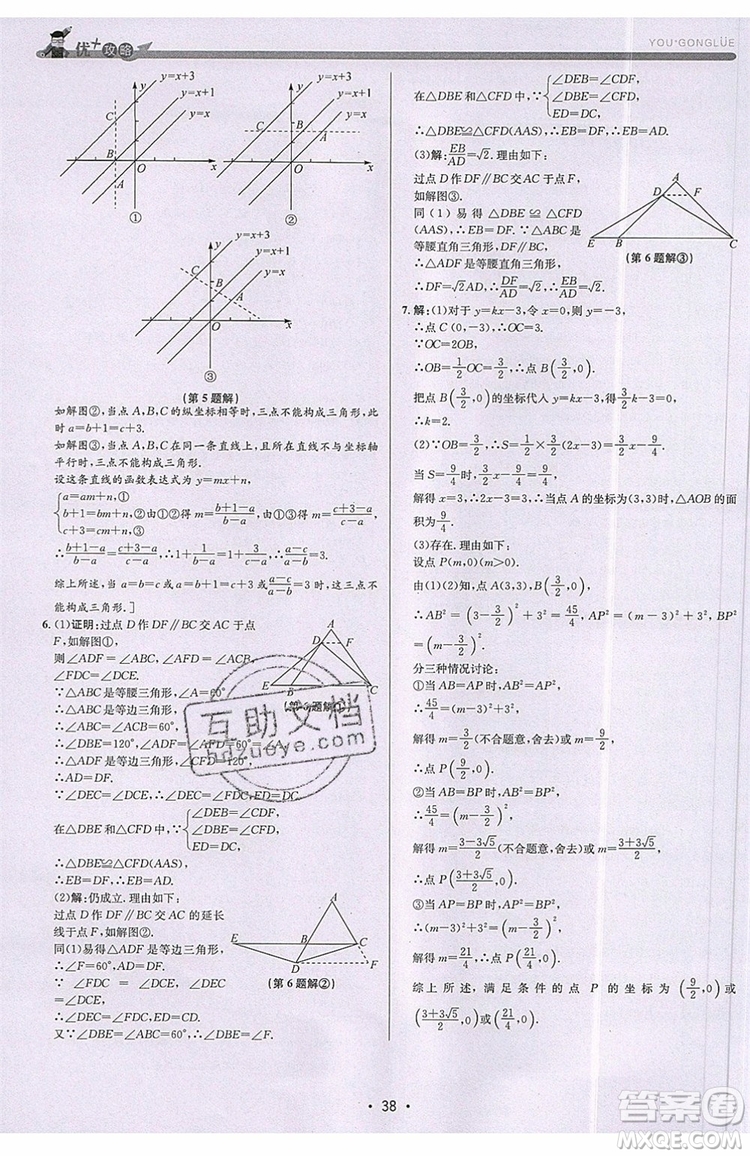 优+攻略
YOU+GONGLÜE
y y=x+3
y=x+1
y=x
C
B
A
O
x
①
y y=x+3
y=x+1
y=x
C
B
A
O
x
②
y y=x+3
y=x+1
y=x
C
B
A
O
x
③
(第5题解)
如解图②,当点A,B,C的纵坐标相等时,三点不能构成三角形,此
时a=b+1=c+3.
如解图③,当点A,B,C在同一条直线上,且所在直线与坐标轴
平行时,三点不能构成三角形.
设这条直线的函数表达式为y=mx+n,
{a=am+n,①
b+1=bm+n,② 解得m=(b+1-a)/(b-a)=(c+3-a)/(c-a).
c+3=cm+n,③
∴(b+1-a)/(b-a)=(c+3-a)/(c-a),∴1+1/(b-a)=1+3/(c-a),∴(a-c)/(a-b)=3.
综上所述,当a=b=c或a=b+1=c+3或(a-c)/(a-b)=3时,三点不
能构成三角形.]
6. (1)证明:过点D作DF∥BC交AC于点
F,如解图①,
则∠ADF=∠ABC,∠AFD=∠ACB,
∠FDC=∠DCE.
∵△ABC是等腰三角形,∠A=60°,
∴△ABC是等边三角形,
∴∠ABC=∠ACB=60°,
∴∠DBE=120°,∠ADF=∠AFD=60°=∠A,
∴△ADF是等边三角形,∠CFD=120°.
∴AD=DF.
∵∠DEC=∠DCE,∠FDC=∠DCE,
∴∠DEC=∠FDC.
A
D
F
E
B
C
(第6题解①)
在△DBE和△CFD中,∵{∠DEB=∠CDF,
∠DBE=∠CFD,
ED=CD,
∴△DBE≌△CFD(AAS),
∴EB=DF,∴EB=AD.
(2)解:仍成立.理由如下:
过点D作DF∥BC交AC的延长
线于点F,如解图②.
同(1)易得△ADF是等边三角形,
∴∠F=60°,AD=DF.
∵DF∥BC,∴∠FDC=∠DCE.
又∵∠DEC=∠DCE,
∴∠FDC=∠DEC.
又∵∠DBE=∠ABC=60°,∴∠DBE=∠F.
A
E
B
C
D
F
(第6题解②)
在△DBE和△CFD中,∵{∠DEB=∠CDF,
∠DBE=∠CFD,
ED=DC,
∴△DBE≌△CFD(AAS),∴EB=DF,∴EB=AD.
(3)解:EB/AD=√2.理由如下:
过点D作DF∥BC交AC于点F,
如解图③.
同(1)易得△DBE≌△CFD
(AAS),∴EB=DF.∵△ABC是
等腰直角三角形,DF∥BC,
∴△ADF是等腰直角三角形,
∴DF=√2AD,∴DF/AD=√2,∴EB/AD=√2.
A
D
F
E
B
C
(第6题解③)
7. 解:(1)对于y=kx-3,令x=0,则y=-3,
∴点C(0,-3),∴OC=3.
∵OC=2OB,
∴OB=1/2OC=3/2,∴点B(3/2,0).
把点B(3/2,0)的坐标代入y=kx-3,得3/2k-3=0,
∴k=2.
(2)∵OB=3/2,∴S=1/2×3/2(2x-3)=3/2x-9/4.
当S=9/4时,则3/2x-9/4=9/4,
解得x=3,∴2x-3=3,∴当点A的坐标为(3,3)时,△AOB的面
积为9/4.
(3)存在.理由如下:
设点P(m,0)(m>0).
由(1)(2)知,点A(3,3),B(3/2,0),
∴AB²=(3-3/2)²+3²=45/4,AP²=(m-3)²+3²,BP²
=(m-3/2)².
分三种情况讨论:
①当AB=AP时,AB²=AP²,
∴45/4=(m-3)²+3²,
解得m=3/2(不合题意,舍去)或m=9/2,∴点P(9/2,0);
②当AB=BP时,AB²=BP²,
∴45/4=(m-3/2)²,
解得m=(3-3√5)/2(不合题意,舍去)或m=(3+3√5)/2,
∴点P((3+3√5)/2,0);
③当AP=BP时,AP²=BP²,
∴(m-3)²+3²=(m-3/2)²,
解得m=21/4,∴点P(21/4,0).
综上所述,满足条件的点P的坐标为(9/2,0)或
((3+3√5)/2,0)或(21/4,0).
互助文档
bdzuoye.com
· 38 ·
答案圈
MXQE.COM